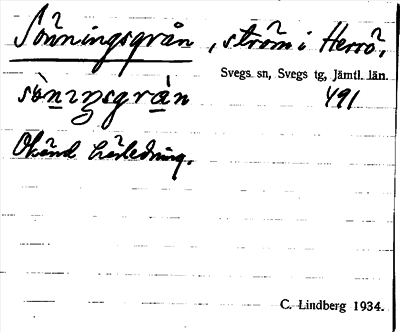 Sönningsgrån, ström i Herrö,
Svegs sn, Svegs tg, Jämtl. län.
sònıŋsgrån 491
Okänd härledning.
C. Lindberg 1934.